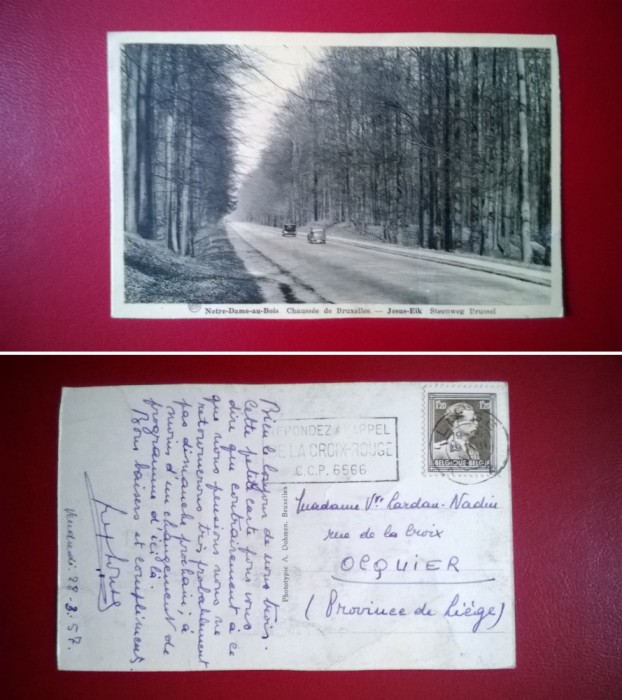 Notre-Dame-au-Bois Chaussée de Bruxelles — Jesus-Eik Steenweg Brussel
Bien le bonjour de nous trois.
Cette petite carte pour vous
dire que contrairement à ce
que nous pensions nous ne
retournerons très probablement
pas dimanche prochain, à
moins d'un changement de
programme d'ici là.
Bons baisers et compliments.
Vendredi 29-3-57.
REPONDEZ A L'APPEL
DE LA CROIX-ROUGE
C.C.P. 6566
1,20 1,20
BELGIQUE-BELGIE
Phototypie A. Dohmen, Bruxelles
Madame Vve Lardau-Nadin
rue de la Croix
OCQUIER
(Province de Liège)